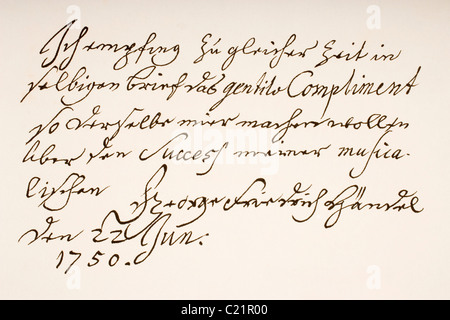 Ich empfing zu gleicher Zeit in
selbigen brief das gentile Compliment
so derselbe mir machen wollen
über den Success meiner musica-
lischen George Friedrich Händel
den 22 Jun:
1750.
alamy
Image ID: C21R00
www.alamy.com